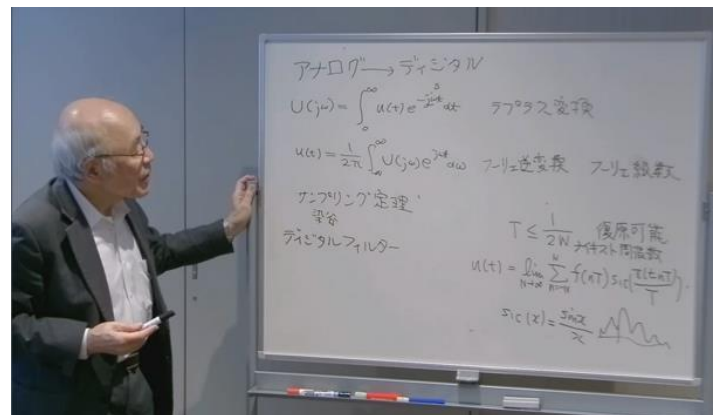 アナログ→ディジタル
U(jω)=∫₀^∞ u(t)e^{-jωt}dt ラプラス変換
u(t)=1/2π ∫_{-∞}^∞ U(jω)e^{jωt}dω フーリエ逆変換 フーリエ級数
サンプリング定理
染谷
ディジタルフィルター
T≤1/2W 復原可能
ナイキスト周波数
u(t)=lim_{N→∞} Σ_{n=-N}^{N} f(nT)sic(π(t-nT)/T).
sic(x)=sinx/x